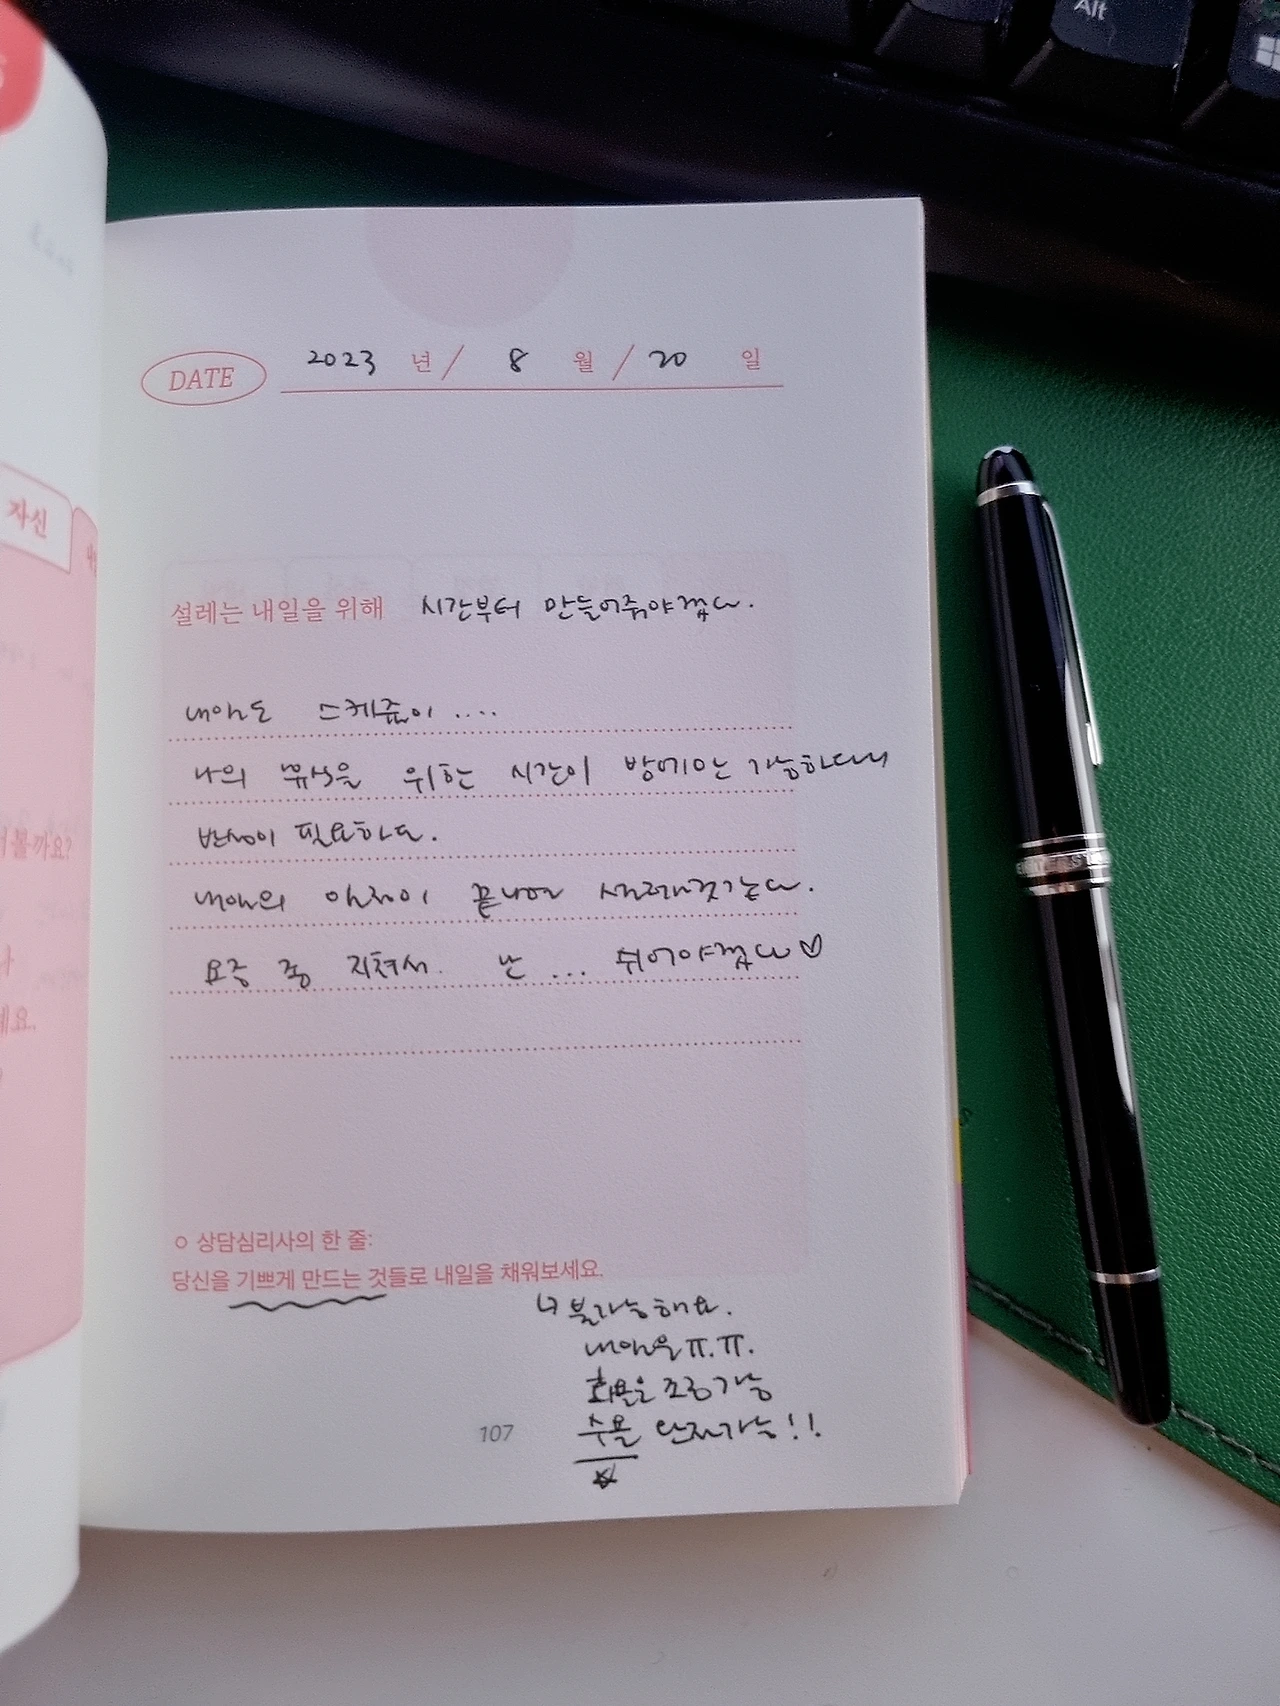 Alt
자신
DATE 2023 년 / 8 월 / 20 일
설레는 내일을 위해 시간부터 만들어줘야겠다.
내일도 스케쥴이 ....
나의 휴식을 위한 시간이 밤에만 가능하다니
반성이 필요하다.
내일의 일정이 끝나면 설레겠다.
요즘 좀 지쳐서. 난 ... 쉬어야겠다♡
볼까요?
나
세요.
○ 상담심리사의 한 줄:
당신을 기쁘게 만드는 것들로 내일을 채워보세요.
↳ 불가능해요.
내일은 ㅠ.ㅠ.
화요일은 조정가능
수요일 완전가능!!
☆
107